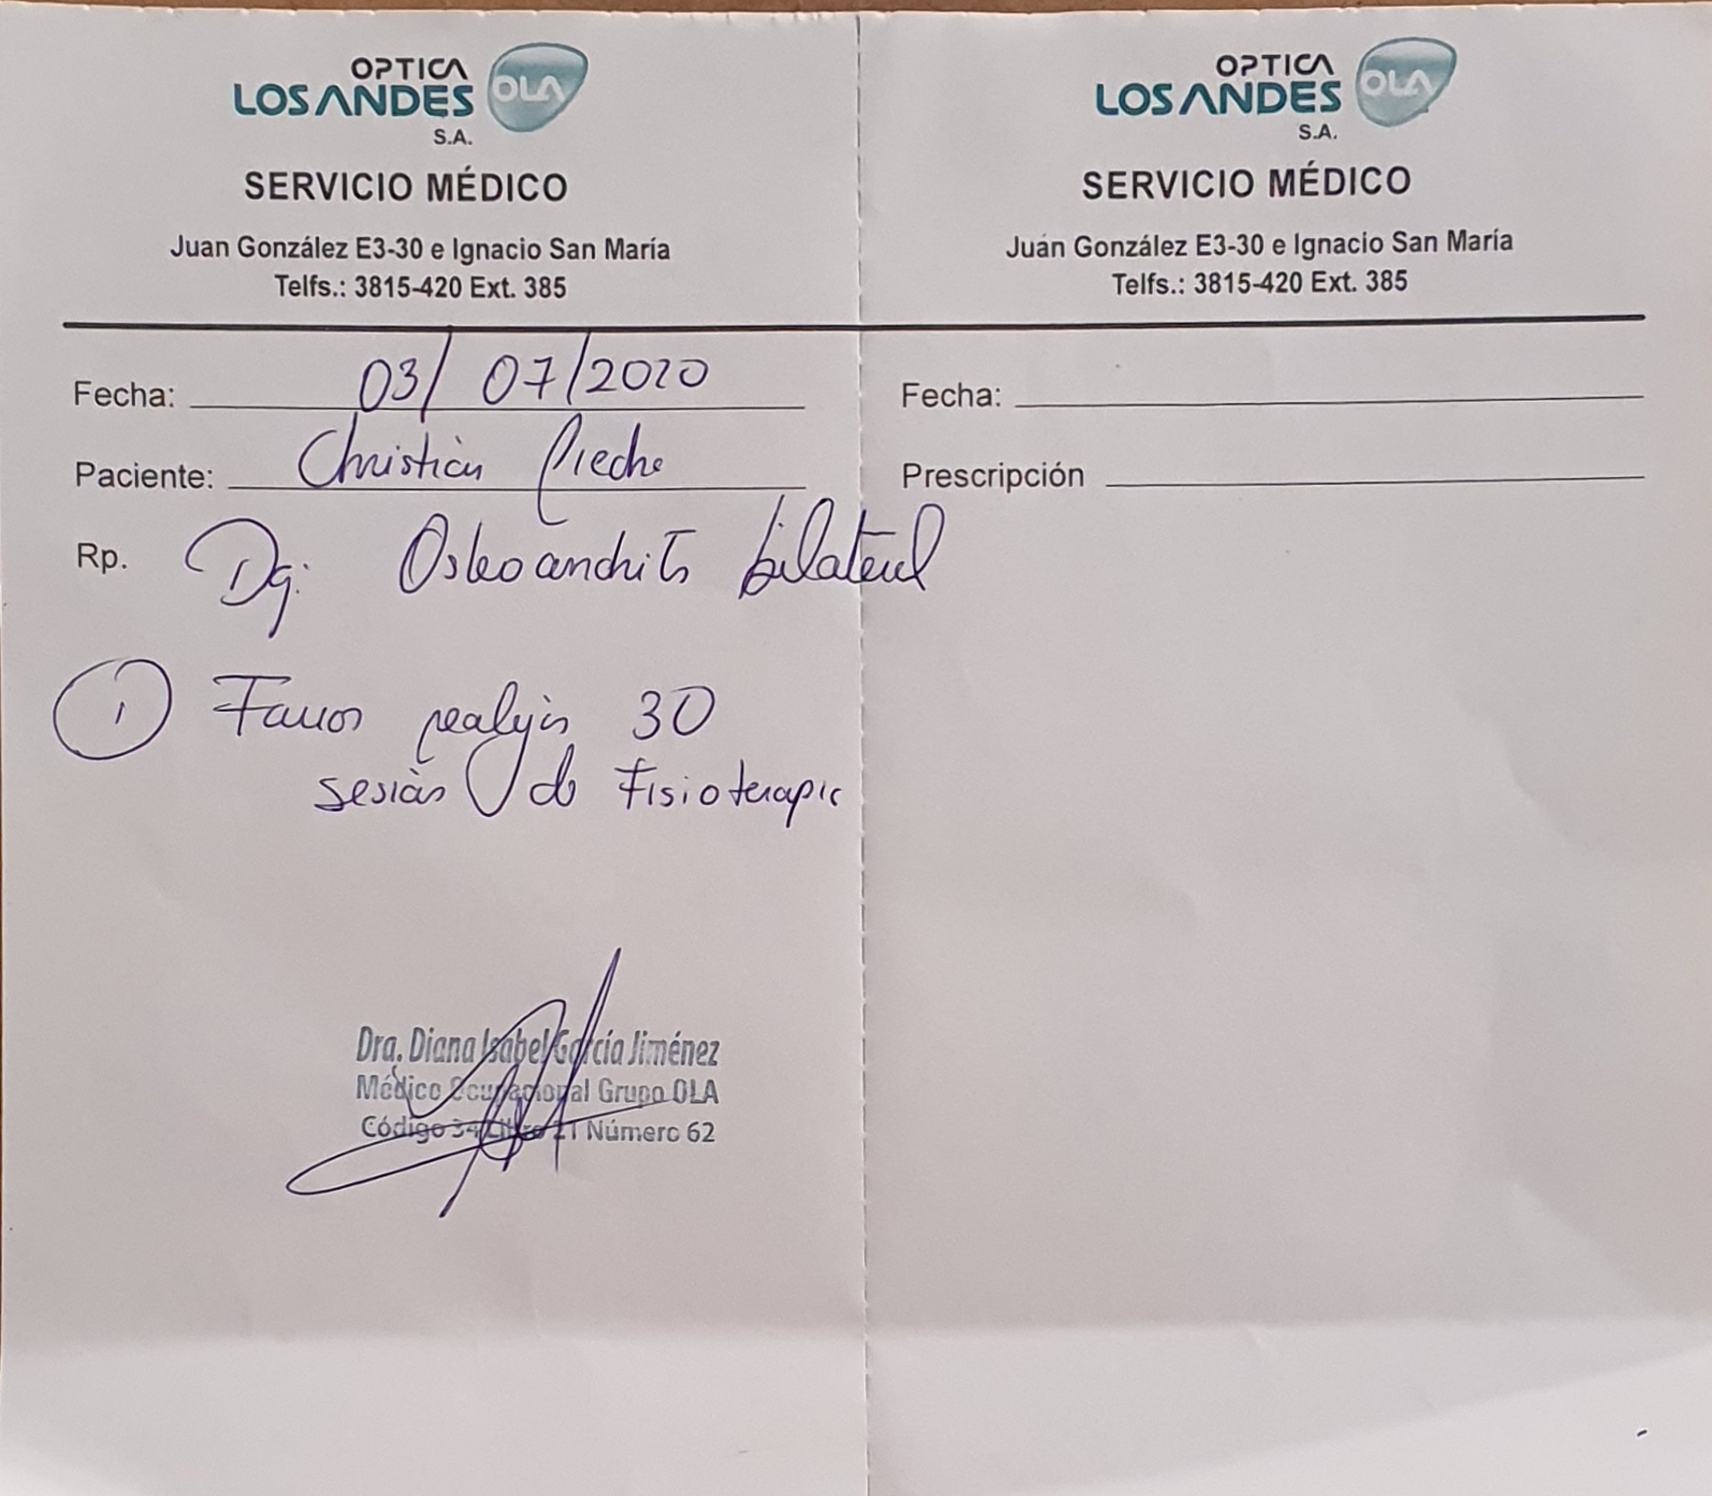 OPTICA
LOS ANDES OLA
S.A.
SERVICIO MÉDICO
Juan González E3-30 e Ignacio San María
Telfs.: 3815-420 Ext. 385
Fecha: 03/07/2020
Paciente: Christian
Rp. Dg: Osteoartritis bilateral
1 Favor realizar 30
sesión de Fisioterapia
Dra. Diana Isabel García Jiménez
Médico Ocupacional Grupo OLA
Código 34 Libro 21 Número 62
OPTICA
LOS ANDES OLA
S.A.
SERVICIO MÉDICO
Juan González E3-30 e Ignacio San María
Telfs.: 3815-420 Ext. 385
Fecha:
Prescripción